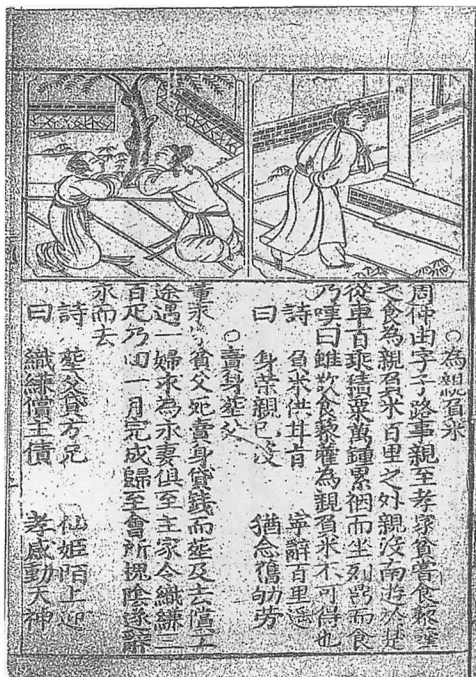 ○為親負米
周仲由字子路事親至孝家貧嘗食藜藿
之食為親負米百里之外親沒南遊於楚
從車百乘積粟萬鍾累裀而坐列鼎而食
乃嘆曰雖欲食藜藿為親負米不可得也
詩 負米供甘旨 寧辭百里遙
曰 身荣親已沒 猶念舊劬劳
○賣身塟父
董永貧父死賣身貸錢而塟及去償工
途遇一婦求為永妻俱至主家令織縑三
百疋乃回一月完成歸至會所槐陰遂辭
永而去
詩 塟父貸方兄 仙姬陌上迎
曰 織縑償主債 孝感動天神